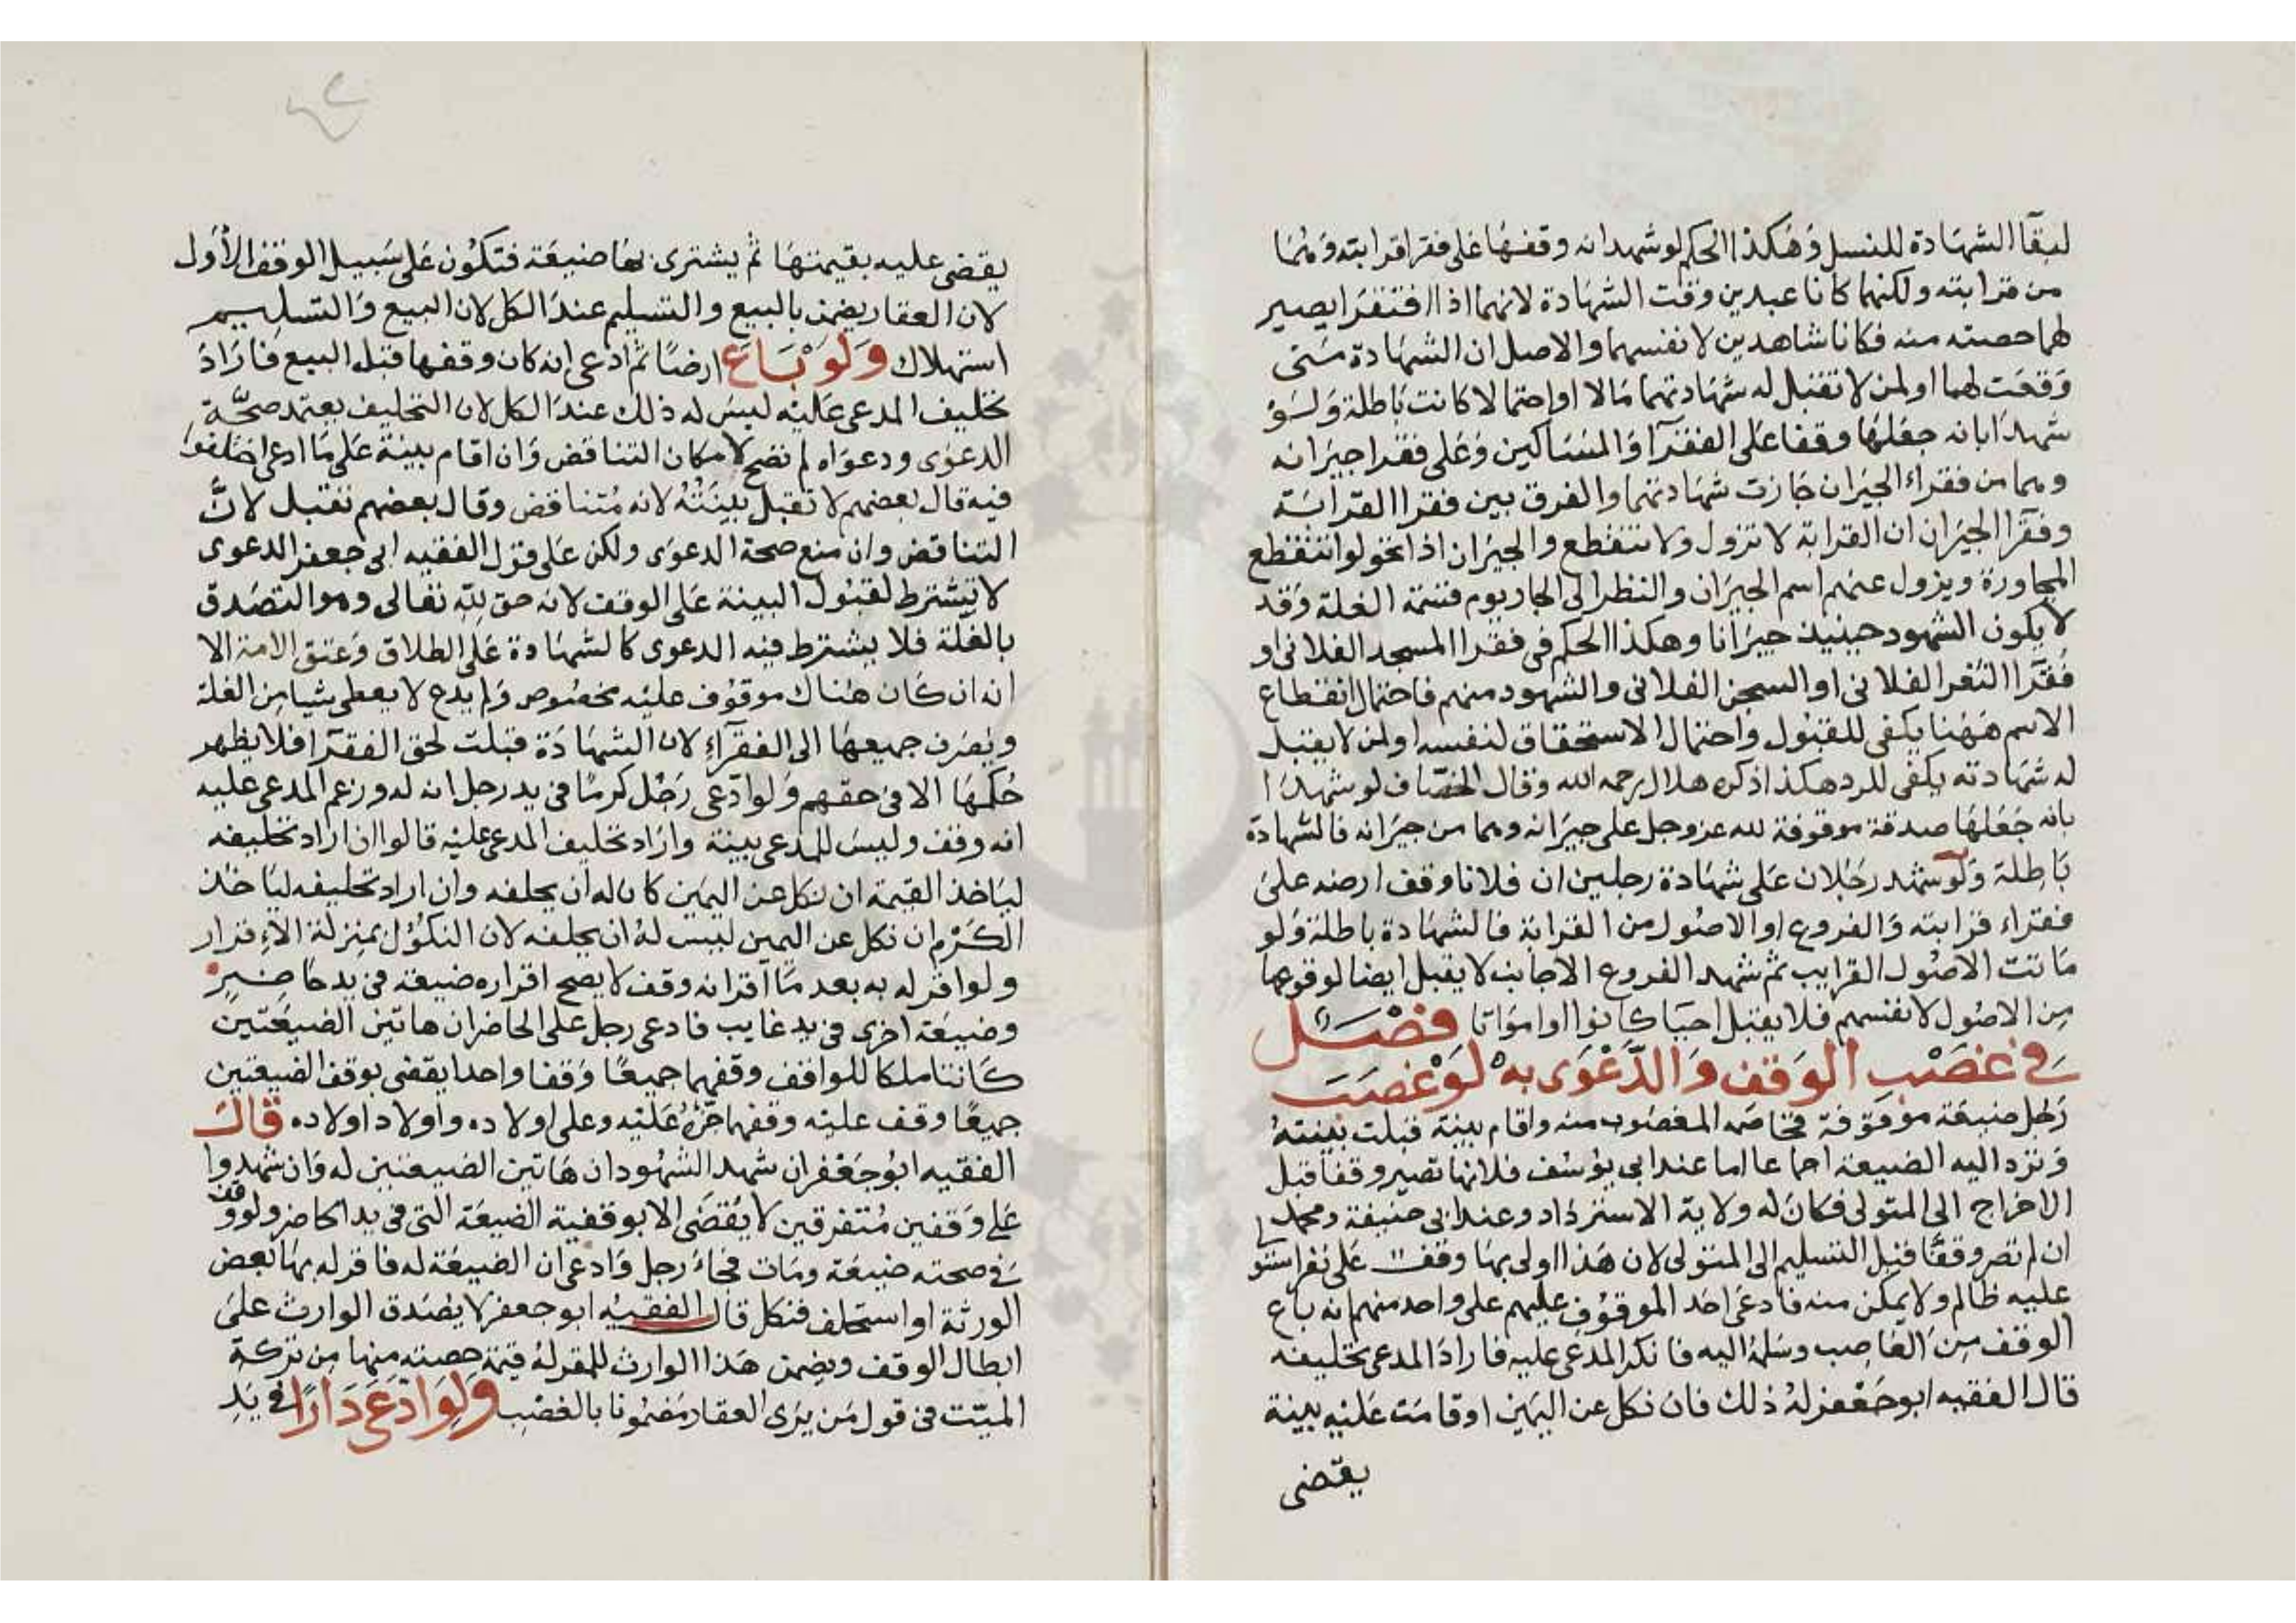 لبقآ الشهادة للنسل وهكذا الحكم لو شهدا انه وقفها على فقرا قرابته وهما
من قرابته ولكنهما كانا عبدين وقت الشهادة لانهما اذا افتقرا يصير
لهما حصته منه فكانا شاهدين لانفسهما والاصل ان الشهادة متى
وقعت لهما او لمن لا تقبل له شهادتهما مالا او احتمالا كانت باطلة ولو
شهدا بانه جعلها وقفا على الفقرآ والمساكين وعلى فقرا جيرانه
وهما من فقراء الجيران جازت شهادتهما والفرق بين فقرا القرابة
وفقرآ الجيران ان القرابة لا تزول ولا تنقطع والجيران اذا تحولوا تنقطع
المجاورة ويزول عنهم اسم الجيران والنظر الى الجار يوم قسمة الغلة وقد
لا يكون الشهود حينيذ جيرانا وهكذا الحكم في فقرا المسجد الفلاني او
فقرآ الثغر الفلاني او السجن الفلاني والشهود منهم فاحتمال انقطاع
الاسم ههنا يكفي للقبول واحتمال الاستحقاق لنفسه او لمن لا يقبل
له شهادته يكفي للرد هكذا ذكره هلال رحمه الله وقال الخصاف لو شهدا
بانه جعلها صدقة موقوفة لله عز وجل على جيرانه وهما من جيرانه فالشهادة
باطلة ولو شهد رجلان على شهادة رجلين ان فلانا وقف ارضه على
فقراء قرابته والفروع او الاصول من القرابة فالشهادة باطلة ولو
ماتت الاصول القرايب ثم شهد الفروع الاجانب لا يقبل ايضا لوقوعها
من الاصول لانفسهم فلا يقبل احيا كانوا او امواتا فصل
في غصب الوقف والدعوى به لو غصب
رجل ضيعة موقوفة فخاصمه المغصوب منه واقام بينة قبلت بينته
وترد اليه الضيعة اجماعا اما عند ابي يوسف فلانها تصير وقفا قبل
الاخراج الى المتولي فكان له ولاية الاسترداد وعند ابي حنيفة ومحمد
ان لم تصر وقفا قبل التسليم الى المتولي لان هذا اولى بها وقف على نفر استولى
عليه ظالم ولا يمكن منه فادعى احد الموقوف عليهم على واحد منهم انه باع
الوقف من الغاصب وسلمه اليه فانكر المدعى عليه فاراد المدعي تحليفه
قال الفقيه ابو جعفر له ذلك فان نكل عن اليمين او قامت عليه بينة
يقضى
يقضى عليه بقيمتها ثم يشترى بها ضيعة فتكون على سبيل الوقف الأول
لان العقار يضمن بالبيع والتسليم عند الكل لان البيع والتسليم
استهلاك ولو باع ارضا ثم ادعى انه كان وقفها قبل البيع فاراد
تحليف المدعى عليه ليس له ذلك عند الكل لان التحليف يعتمد صحة
الدعوى ودعواه لم تصح لامكان التناقض وان اقام بينة على ما ادعى اختلفوا
فيه قال بعضهم لا تقبل بينته لانه متناقض وقال بعضهم تقبل لان
التناقض وان منع صحة الدعوى ولكن على قول الفقيه ابي جعفر الدعوى
لا تشترط لقبول البينة على الوقف لانه حق لله تعالى وهو التصدق
بالغلة فلا يشترط فيه الدعوى كالشهادة على الطلاق وعتق الامة الا
انه ان كان هناك موقوف عليه مخصوص ولم يدع لا يعطى شيا من الغلة
ويصرف جميعها الى الفقرآء لان الشهادة قبلت لحق الفقرآ فلا يظهر
حكمها الا في حقهم ولو ادعى رجل كرما في يد رجل انه له وزعم المدعى عليه
انه وقف وليس للمدعي بينة واراد تحليف المدعى عليه قالوا ان اراد تحليفه
لياخذ القيمة ان نكل عن اليمين كان له ان يحلفه وان اراد تحليفه لياخذ
الكرم ان نكل عن اليمين ليس له ان يحلفه لان النكول بمنزلة الاقرار
ولو اقر له به بعد ما اقر انه وقف لا يصح اقراره ضيعة في يد حاضر
وضيعة اخرى في يد غايب فادعى رجل على الحاضر ان هاتين الضيعتين
كانتا ملكا للواقف وقفهما جميعا وقفا واحدا يقضى بوقف الضيعتين
جميعا وقف عليه وقفهما جده عليه وعلى اولاده واولاد اولاده قال
الفقيه ابو جعفر ان شهد الشهود ان هاتين الضيعتين له وان شهدوا
على وقفين متفرقين لا يقضى الا بوقفية الضيعة التي في يد الحاضر ولو وقف
في صحته ضيعة ومات فجاء رجل وادعى ان الضيعة له فاقر له بها بعض
الورثة او استحلف فنكل قال الفقيه ابو جعفر لا يصدق الوارث على
ابطال الوقف ويضمن هذا الوارث للمقر له قيمة حصته منها من تركة
الميت في قول من يرى العقار مضمونا بالغصب ولو ادعى دارا في يد